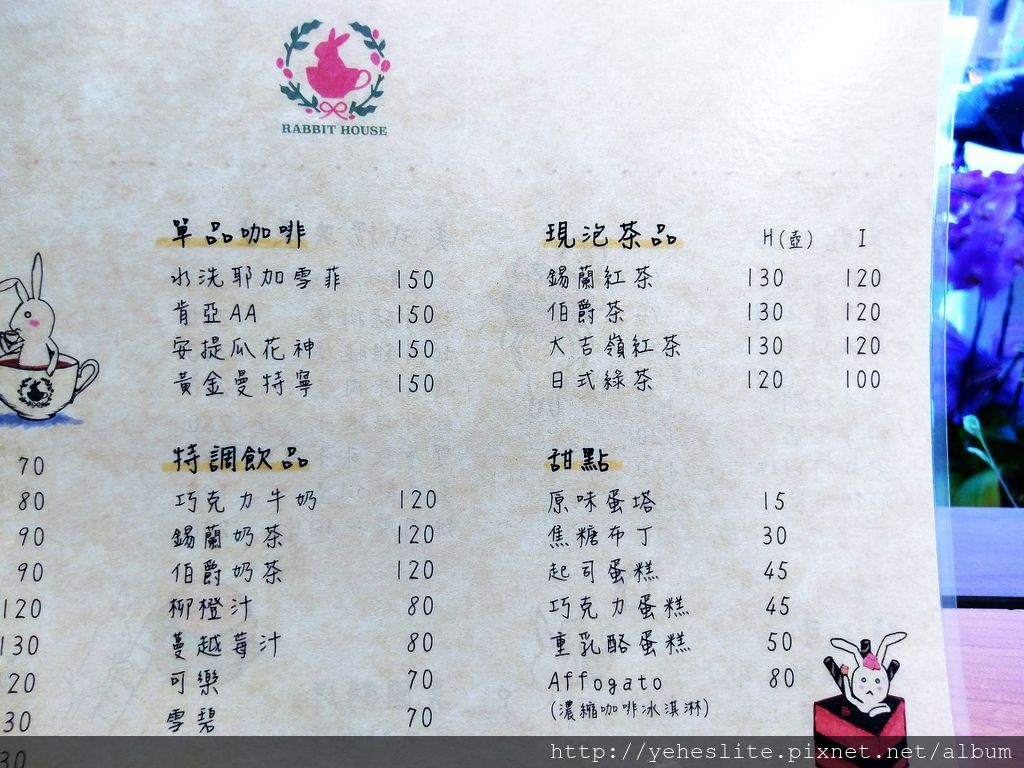 RABBIT HOUSE
單品咖啡
水洗耶加雪菲 150
肯亞AA 150
安提瓜花神 150
黃金曼特寧 150
特調飲品
巧克力牛奶 120
錫蘭奶茶 120
伯爵奶茶 120
柳橙汁 80
蔓越莓汁 80
可樂 70
雪碧 70
現泡茶品 H(壺) I
錫蘭紅茶 130 120
伯爵茶 130 120
大吉嶺紅茶 130 120
日式綠茶 120 100
甜點
原味蛋塔 15
焦糖布丁 30
起司蛋糕 45
巧克力蛋糕 45
重乳酪蛋糕 50
Affogato 80
(濃縮咖啡冰淇淋)
70
80
90
90
120
130
http://yeheslite.pixnet.net/album